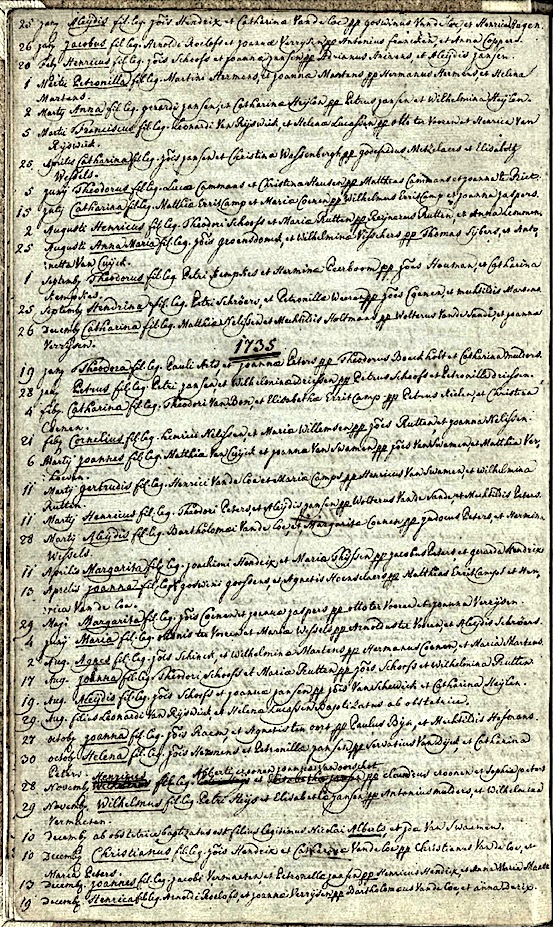 25 jany Aleijdis fil. leg. jois Hendrix et Catharina Van de Loe pp goswinus Van de Loe et Henrica
26 jany Jacobus fil. leg. Arnoldi Roelofs et joanna Verrijsen pp Antonius francken et Anna Coppers.
20 feby Henricus fil. leg. jois Schoofs et joanna jansen pp Adrianus et Aleijdis jansen.
1 Martii Petronilla fil. leg. Martini Hermens et joanna Martens pp Hermanus Hermens et Helena
Martens
2 Marty Anna fil. leg. gerardi jansen, et Catharina Heijlen pp Petrus jansen et Wilhelmina Heijlen.
5 Martii Franciscus fil. leg. Leonardi Van Rijswick et Helena Lucassen pp otto ter Voeren et Henrica Van
Rijswick.
25 Aprilis Catharina fil. leg. jois jansen et Christina Wassenbergh pp godefridus Metzelaers et Elisabeth
Wessels.
5 junij Theodorus fil. leg. Luca Cammans et Christina pp Matthias Cammans et joanna
15 july Catharina fil. leg. Matthia Erit Camp et Maria Coenen pp Wilhelmus Erit Camp et joanna jaspers.
2 Augusti Henricus fil. leg. Theodori Schoofs et Maria Rutten pp Reijnerus Rutten et Anna
25 Augusti Anna Maria fil. leg. jois groensdonck et Wilhelmina Visschers pp Thomas Sijbers, et Anto
netta Van Cuijck.
1 Septemb Theodorus fil. leg. Petri Kempkes et Hermina Peerboom pp joes Houtman, et Catharina
Kempkes.
25 Septemb Hendrina fil. leg. Petri Schroers, et Petronilla pp joes Coenen, et Mechtildis Martens
26 Decemb Catharina fil. leg. Matthia Nelissen et Mechtildis Holtmans pp Wolterus Van de Sande et joanna
Verrijsen.
1735
19 jany Theodora fil. leg. Pauli Arts et joanna Peters pp Theodorus Boeckholt et Catharina mulders.
28 jany Petrus fil. leg. Petri jansen et Wilhelmina driessen pp Petrus Schoofs et Petronilla driessen.
4 feby Catharina fil. leg. Theodori Van Bon, et Elisabetha Erit Camp pp Petrus et Christina
Coenen.
21 feby Cornelius fil. leg. Henrici Nelissen, et Maria Willemsen pp joes Rutten et joanna Nelissen.
6 Martij joannes fil. leg. Matthia Van Cuijck et joanna Van Swamen pp joes Van Swamen, et Matthia Ver,
hoeven.
11 Marty gertrudis fil. leg. Henrici Van de Loe et Maria Camps pp Henricus Van Swamen et Wilhelmina
Rutten.
11 Martij Henricus fil. leg. Theodori Peters, et Aleijdis jansen pp Wolterus Van de Sande, et Mechtildis Peters.
28 Martij Aleijdis fil. leg. Bartholomai Van de Loe, et Margarita Coenen pp judocus Peters, et Hermina
Wessels.
11 Aprilis Margarita fil. leg. joachimi Hendrix, et Maria Thijssen pp jacobus Peters et gerarda Hendrix
13 Aprilis joanna fil. leg. goswini goossens et Agnetis pp Matthias Erit Camp et Hen,
rica Van de Loe.
29 Maij Margarita fil. leg. jois Coenen et joanna jaspers pp otto ter Voeren et joanna Verrijsen.
4 junij Maria fil. leg. ottonis ter Voeren et Maria Wessels pp Arnoldus ter Voeren, et Aleijdis Schroers.
2 Aug. Agnes fil. leg. jois Schinck et Wilhelmina Martens pp Hermanus Coenen, et Maria Martens.
17 Aug. joanna fil. leg. Theodori Schoofs et Maria Rutten pp joes Schoofs et Wilhelmina Rutten.
19. Aug. Aleijdis fil. leg. jois Schoofs et joanna jansen pp joes Van Schewick et Catharina Heijlen.
29. Aug. filius Leonardi Van Rijswick et Helena Lucassen Baptizatus ab obstetrice.
27 octob joanna fil. leg. jois Raem, et Agnetis ten oort pp Paulus et Mechtildis Hofmans.
30 octob Helena fil. leg. jois Hermens et Petronilla jansen pp Servatius Van Dijck et Catharina
Peters.
28 Novemb Henricus fil. leg. Alberti croonen joanna Van voorschot pp claudius croonen et Sophia peters
29 Novemb. Wilhelmus fil. leg. Petri Slijs et Elisabetha jansen pp Antonius mulders, et Wilhelmina
Vermeeten.
10 decemb ab obstetrice baptizatus est filius legitimus Nicolai Alberts et joa Van Swaemen.
10 Decemb Christianus fil. leg. jois Hendrix et Catharina Van de Loe pp Christianus Van de Loe, et
Maria Peters.
13 decemb. joannes fil. leg. jacobi Vermeeten, et Petronella jansen pp Henricus Hendrix, et Anna Maria
19 decemb Henrica fil. leg. Arnoldi Roelofs et joanna Verrijsen pp Bartholomaus Van de Loe et anna derix.